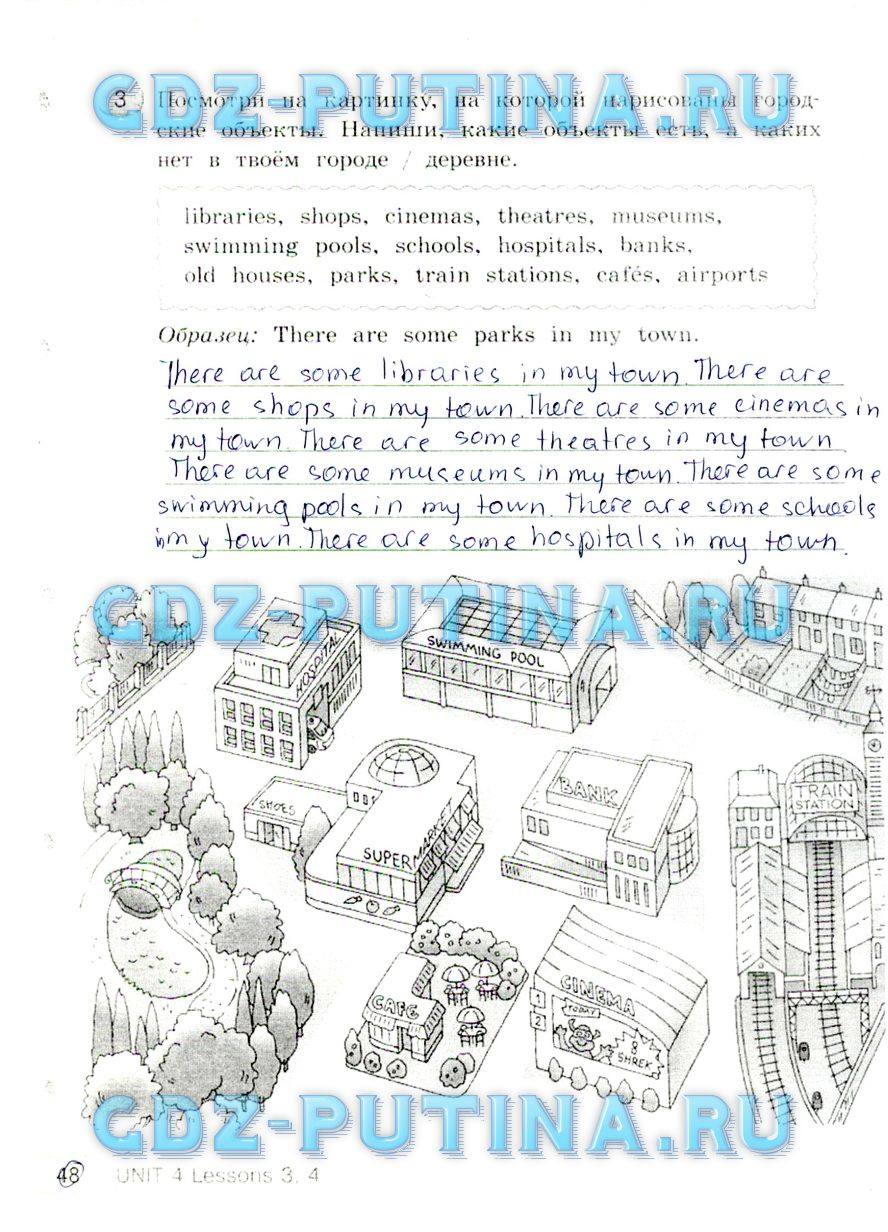 GDZ-PUTINA.RU
3 Посмотри на картинку, на которой нарисованы город-
ские объекты. Напиши, какие объекты есть, а каких
нет в твоём городе / деревне.
libraries, shops, cinemas, theatres, museums,
swimming pools, schools, hospitals, banks,
old houses, parks, train stations, cafés, airports
Образец: There are some parks in my town.
There are some libraries in my town. There are
some shops in my town. There are some cinemas in
my town. There are some theatres in my town
There are some museums in my town. There are some
swimming pools in my town. There are some schools
in my town. There are some hospitals in my town.
GDZ-PUTINA.RU
HOSPITAL
SWIMMING POOL
SHOES
SUPERMARKET
BANK
TRAIN
STATION
CAFE
CINEMA
1
2
TODAY
SHREK
GDZ-PUTINA.RU
48 UNIT 4 Lessons 3, 4